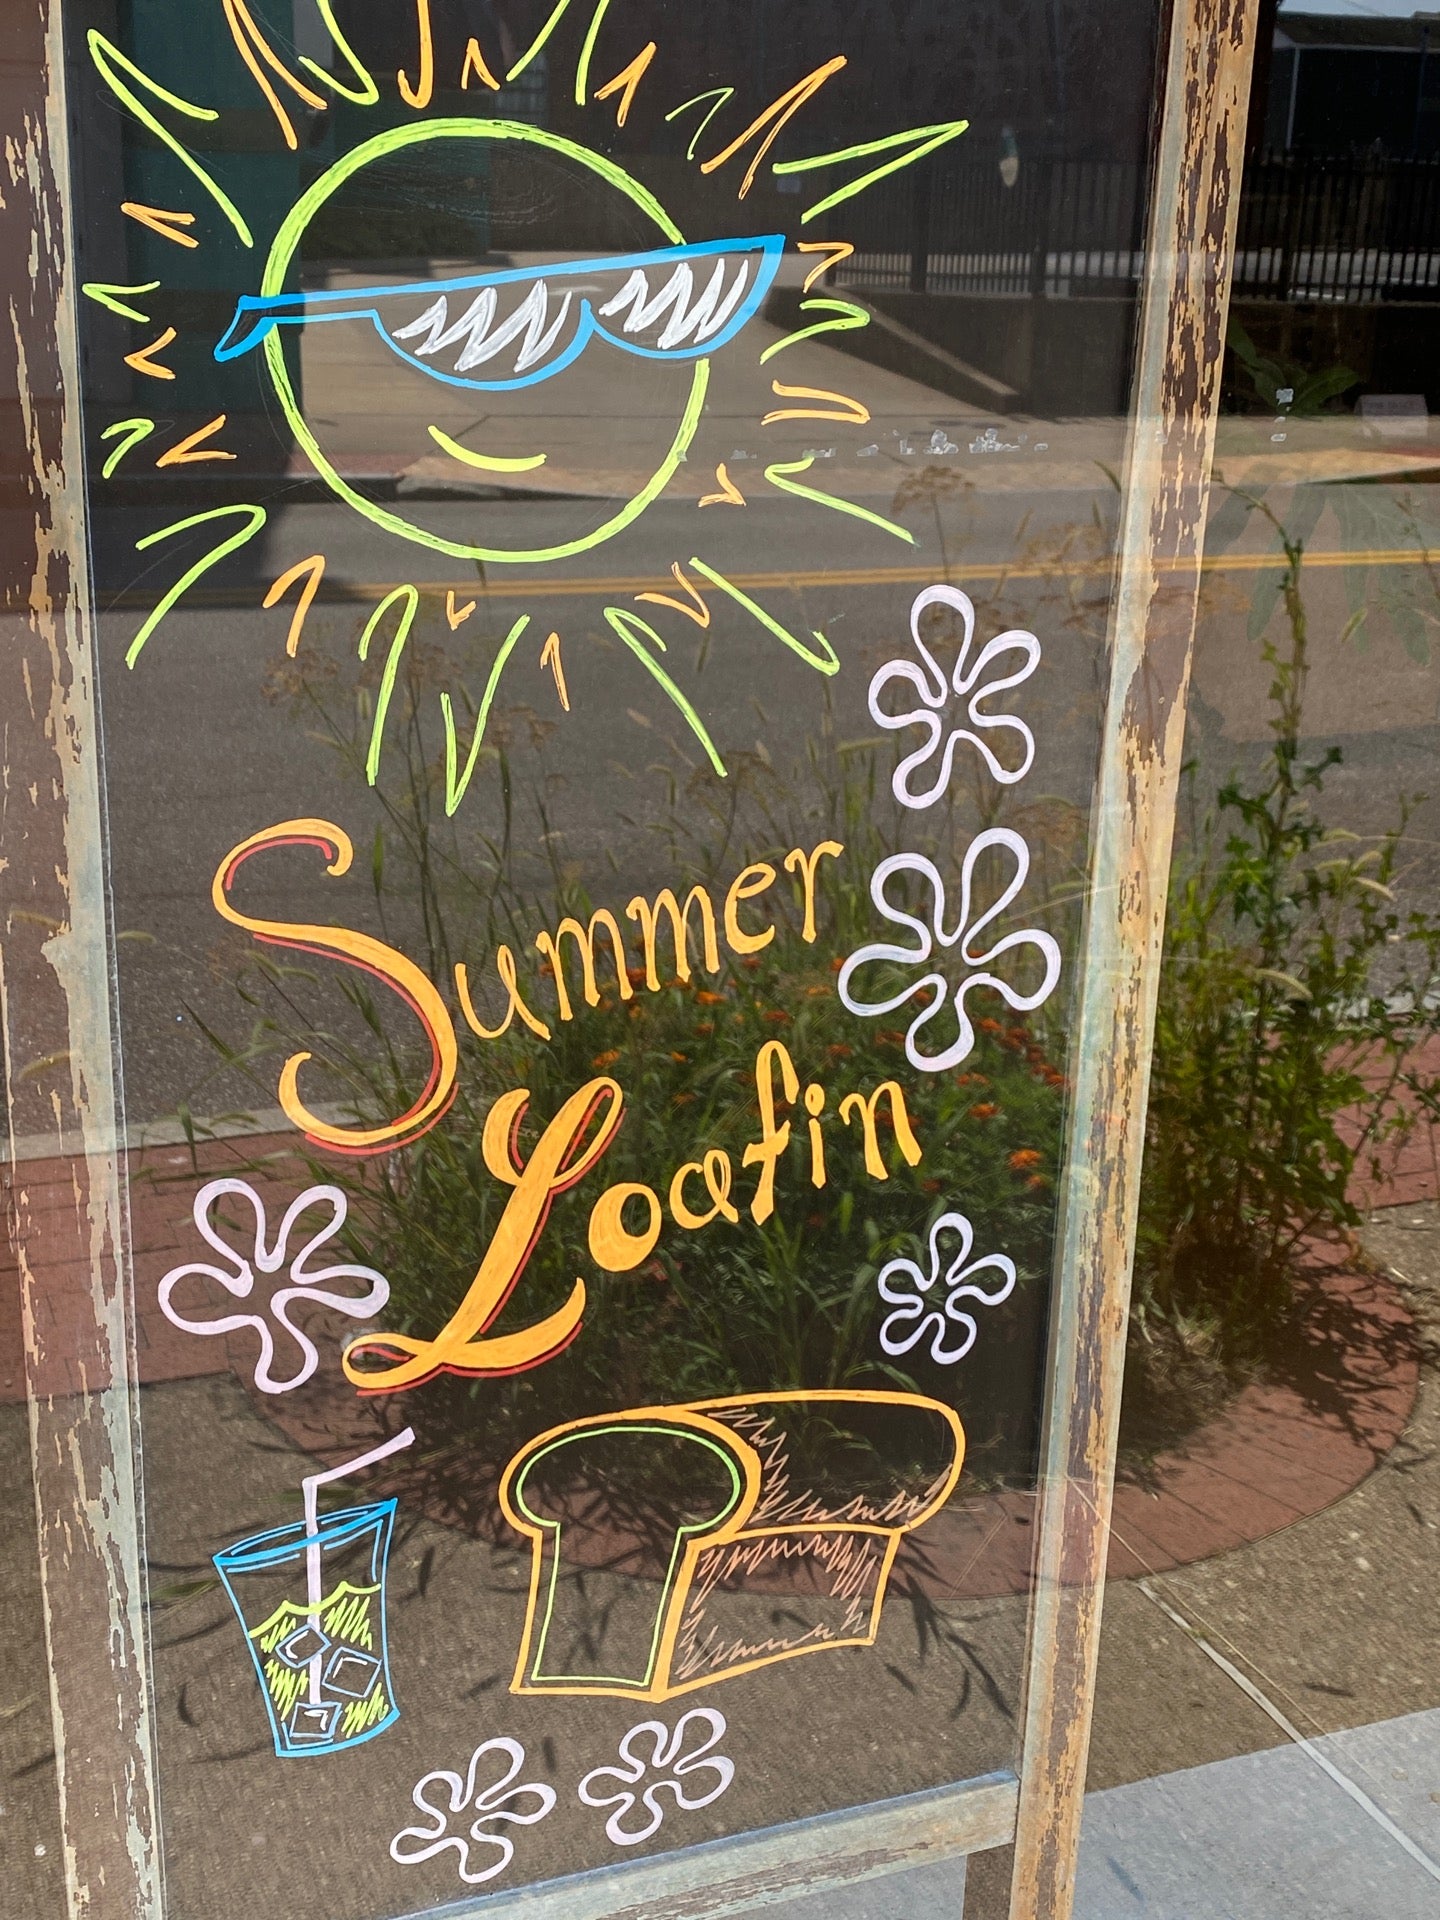 Summer
Loafin